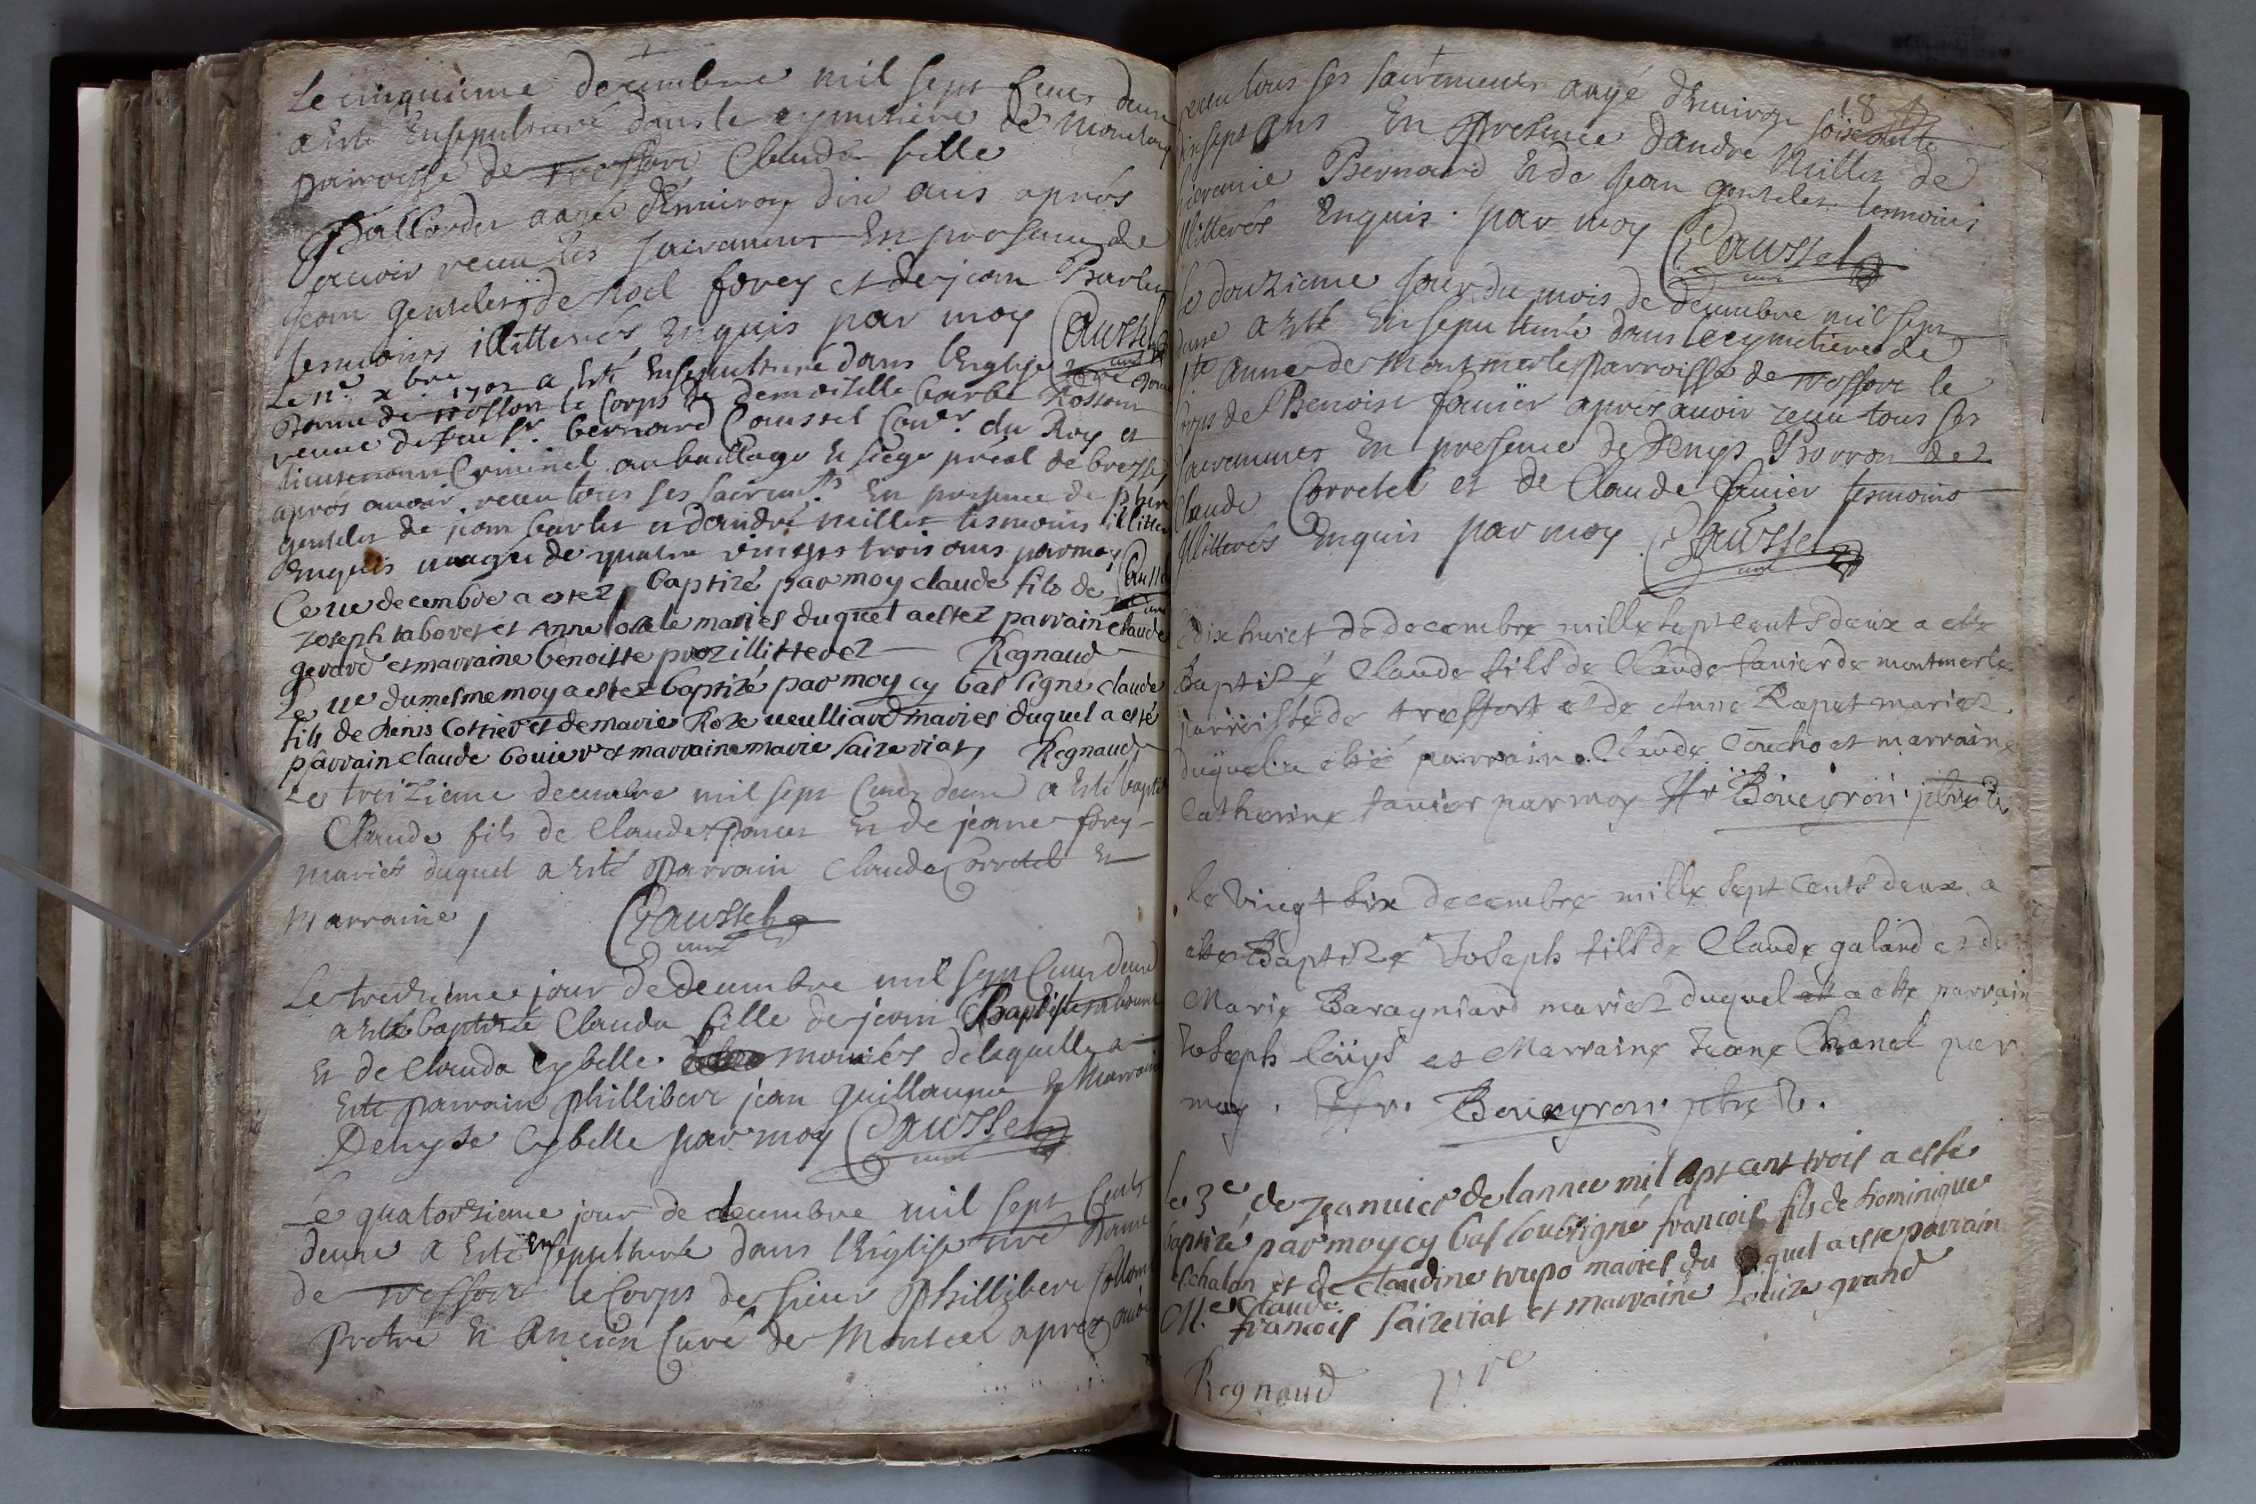 Le cinquieme decembre mil sept cens deux
a esté Ensepulturé dans le cymetiere de
parroisse de tressort Clauda fille
Ballandes aagée d'Environ dix ans aprés
avoir receu les sacremens En presence de
jean genselet de Noel forey et de jean Barlet
tesmoins illitterés Enquis par moy Caussel
curé
Le 11e xbre 1702 a Esté Ensepulturé dans l'Eglise
de tressort le Corps de demoiselle barbe
veuve de feu Sr. bernard Caussel Conr. du Roy et
lieutenant Criminel au baillage et siege préal de bresse
aprés avoir receu tous ses sacremts En presence de
genselet de jean barlet et d'andré millet tesmoins
Enquis aagée de quatre vingts trois ans par moy Caussel
curé
Ce 11e decembre a estez baptizé par moy claude fils de
Joseph tabovet et Anne mariés duquel a estez parrain claude
gerard et marraine benoitte illitterez Regnaud
Le 11e du mesme moy a estez baptizé par moy cy bas signé claude
fils de Denis Cottier et de marie Roze veulliard mariés duquel a esté
parrain Claude bouier et marraine marie Saizeriat Regnaud
Le treizieme decembre mil sept Cens deux a Esté baptisé
Claude fils de Claude Et de jeane forey
mariés duquel a Esté Parrain Claude Corretel Et
Marraine
Caussel
curé
Le treizieme jour de decembre mil sept Cens deux
a Esté baptisée Clauda fille de jean Baptiste
Et de Clauda Cybelle mariés de laquelle a
Esté parrain phillibert jean guillaume Et Marraine
Denyse Cybelle par moy Caussel
curé
Le quatorzieme jour de decembre mil sept Cents
deux a Esté Ensepulturé dans l'Eglise nre Dame
de tressort le Corps de sieur Phillibert
Pretre Et Ancien Curé de Montcel aprés avoir
18
receu tous ses sacremens aagé d'Environ soixante
dix sept ans En Presence d'andre Millet de
Bernard Et de Jean genselet tesmoins
Illitterés Enquis par moy Caussel
curé
le douzieme jour du mois de decembre mil sept
a Esté Ensepulturé dans le cymetiere de
Ste Anne de Montmerle Parroisse de tressort le
Corps de Benoist fanier aprés avoir receu tous ses
sacremens En presence de Denys Borron de
Claude Corretel et de Claude fanier tesmoins
Illitterés Enquis par moy Caussel
curé
dix huict de decembre mille sept cents deux a esté
Baptisé Claude fils de Claude fanier de montmerle
parroisse de tressort et de Anne Rapet mariez
duquel a esté parrain Claude Coucho et marraine
Catherine fanier par moy Boueyron
le vingt six decembre mille sept cents deux a
esté Baptisé Joseph fils de Claude galand et de
Marie Baragniard mariez duquel a esté parrain
Joseph loüys et Marraine Jeane Chanel par
moy. Boueyron
le 3e de Jeanvier de lannee mil sept cent trois a esté
baptizé par moy cy bas soubsigné francois fils de Dominique
Echalon et de claudine trupo mariés du quel a este parrain
Claude
francois Saizeriat et marraine Louize grand
Regnaud